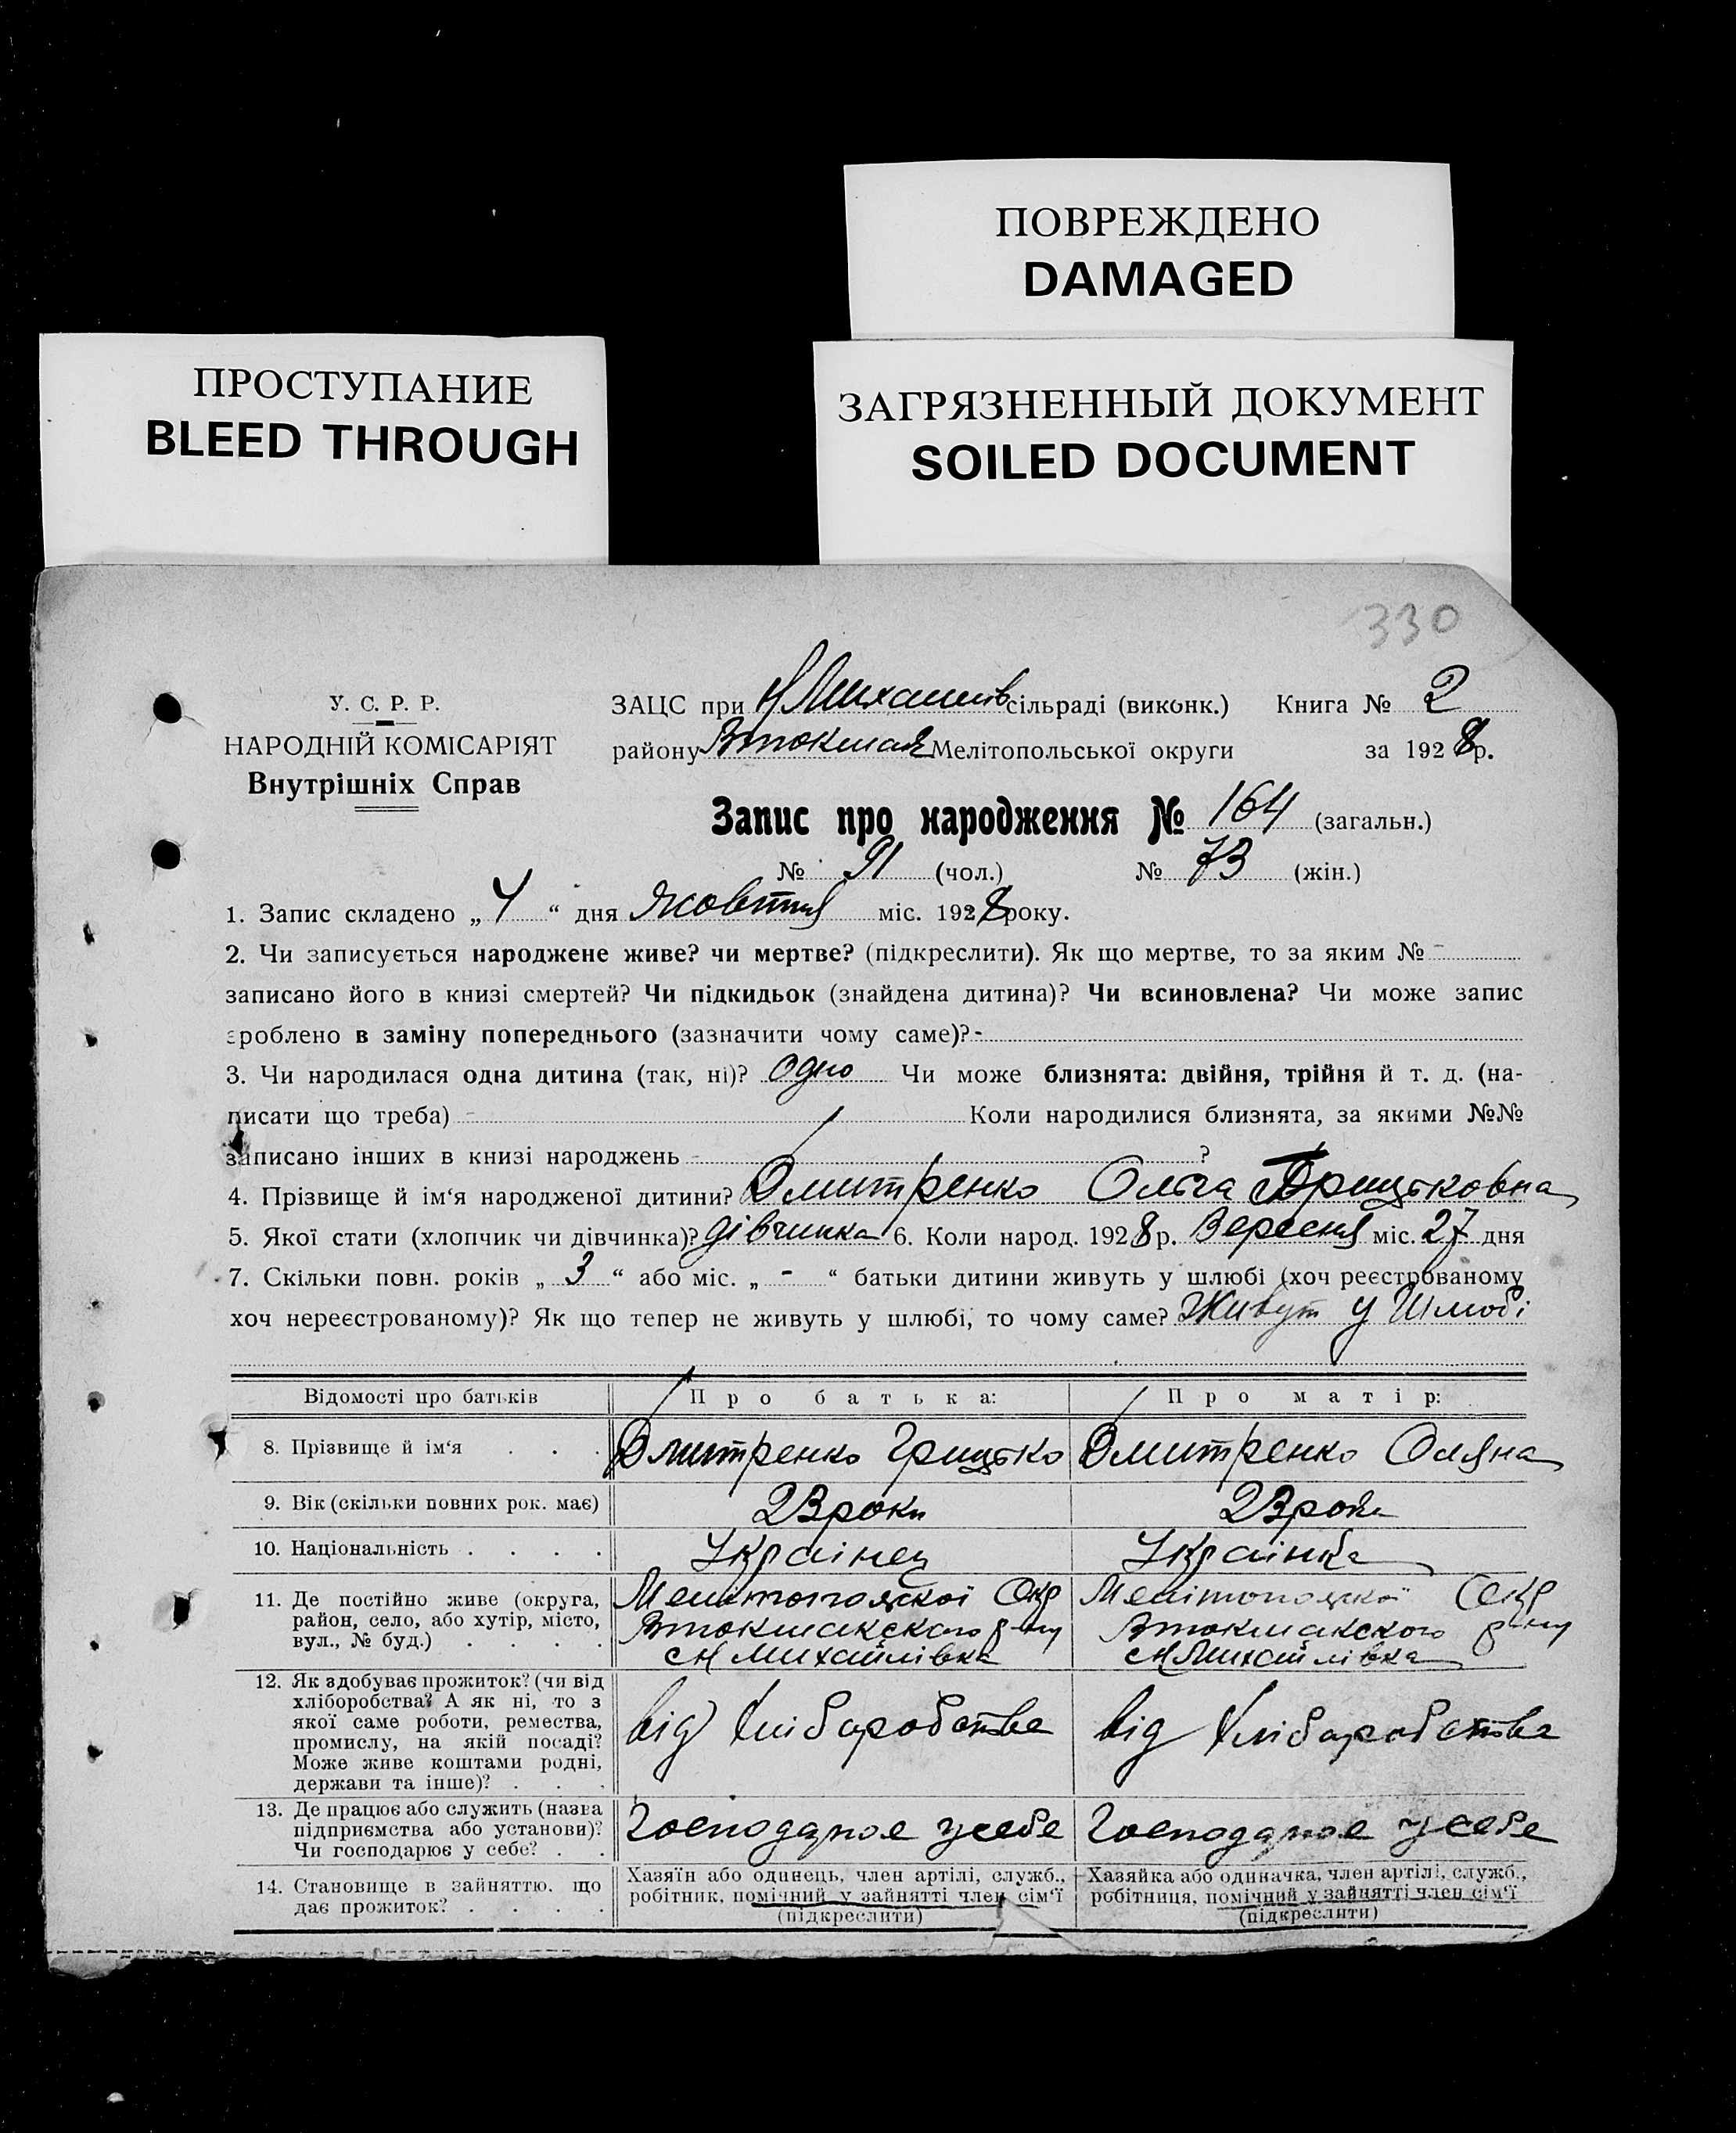 ПОВРЕЖДЕНО
DAMAGED
ПРОСТУПАНИЕ
BLEED THROUGH
ЗАГРЯЗНЕННЫЙ ДОКУМЕНТ
SOILED DOCUMENT
330
У. С. Р. Р.
НАРОДНІЙ КОМІСАРІЯТ
Внутрішніх Справ
ЗАЦС при Н Михайлів сільраді (виконк.) Книга № 2
району Втокмак Мелітопольської округи за 1928 р.
Запис про народження № 164 (загальн.)
№ 91 (чол.) № 73 (жін.)
1. Запис складено „ 4 “ дня Жовтня міс. 1928 року.
2. Чи записується народжене живе? чи мертве? (підкреслити). Як що мертве, то за яким № -
записано його в книзі смертей? Чи підкидьок (знайдена дитина)? Чи всиновлена? Чи може запис
зроблено в заміну попереднього (зазначити чому саме)? -
3. Чи народилася одна дитина (так, ні)? Одно Чи може близнята: двійня, трійня й т. д. (на-
писати що треба) - Коли народилися близнята, за якими №№
записано інших в книзі народжень - ?
4. Прізвище й ім‘я народженої дитини? Дмитренко Ольга Грицьковна
5. Якої стати (хлопчик чи дівчинка)? дівчинка 6. Коли народ. 1928 р. Вересня міс. 27 дня
7. Скільки повн. років „ 3 “ або міс. „ - “ батьки дитини живуть у шлюбі (хоч реєстрованому
хоч нереєстрованому)? Як що тепер не живуть у шлюбі, то чому саме? Живут у Шлюбі
Відомості про батьків Про батька: Про матір:
8. Прізвище й ім‘я . . . Дмитренко Грицько Дмитренко Оляна
9. Вік (скільки повних рок. має) 23 роки 23 роки
10. Національність . . . . Українец Українка
11. Де постійно живе (округа, Мелітопольскої Окр Мелітопольскої Окр
район, село, або хутір, місто, Втокмакского р-ну Втокмакского р-ну
вул., № буд.) . . . . с Н Михайлівка с Н Михайлівка
12. Як здобуває прожиток? (чи від
хліборобства? А як ні, то з
якої саме роботи, ремества, від Хлібаробства від Хлібаробства
промислу, на якій посаді?
Може живе коштами родні,
держави та інше)? . . .
13. Де працює або служить (назва
підприємства або установи)? Господарює у себе Господарює у себе
Чи господарює у себе? . .
14. Становище в зайняттю, що Хазяїн або одинець, член артілі, служб., Хазяйка або одиначка, член артілі, служб.,
дає прожиток? . . . . робітник, помічний у зайнятті член сім‘ї робітниця, помічний у зайнятті член сім‘ї
(підкреслити) (підкреслити)